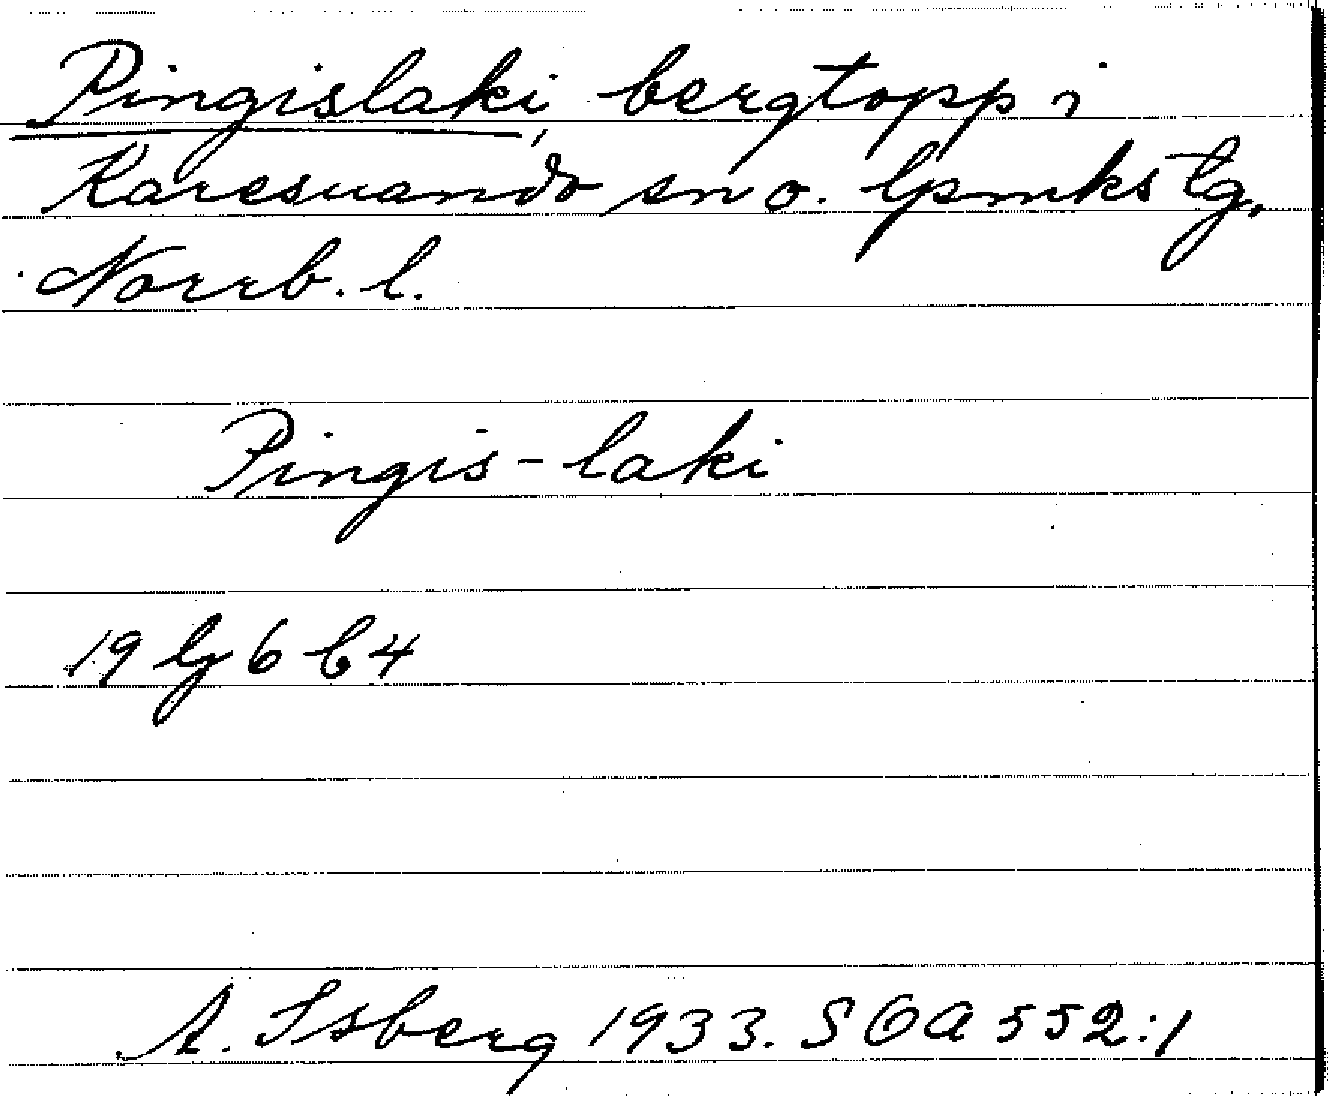 Pingislaki, bergtopp i
Karesuando sn o. lpmks tg,
Norrb. l.
Pingis-laki
19 lg 6 b 4
A. Isberg 1933. SOA 552:1